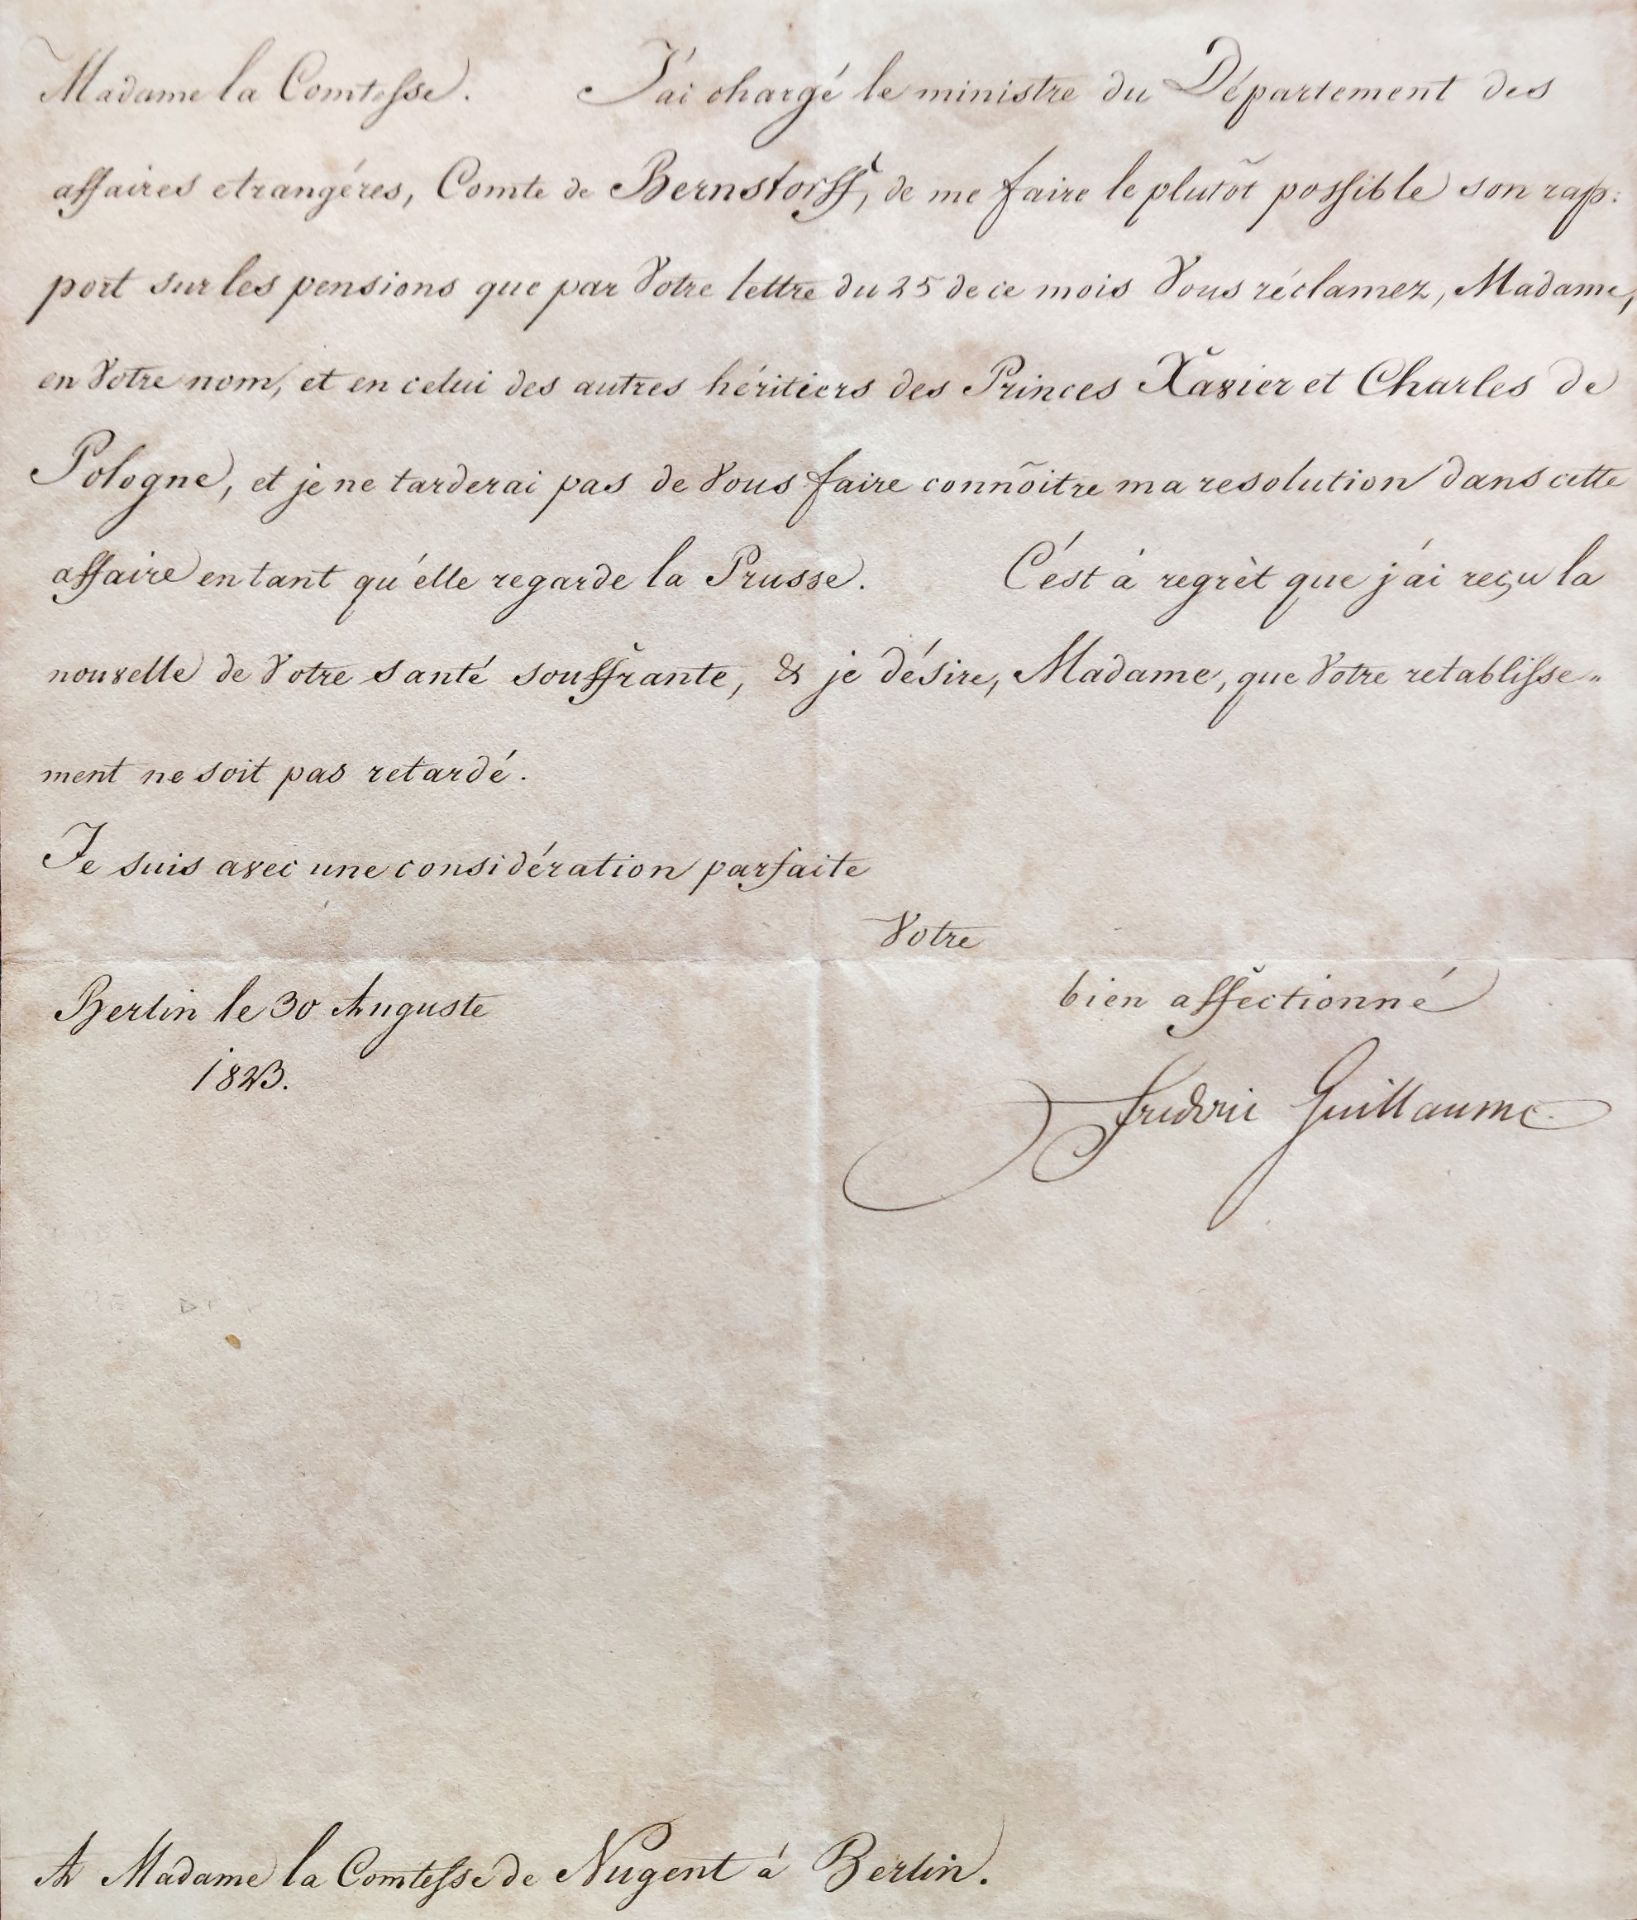 Madame la Comtesse. J'ai chargé le ministre du Département des
affaires etrangéres, Comte de Bernstorff, de me faire le plutôt possible son rap:
port sur les pensions que par Votre lettre du 25 de ce mois Vous réclamez, Madame,
en Votre nom, et en celui des autres héritiers des Princes Xavier et Charles de
Pologne, et je ne tarderai pas de Vous faire connôitre ma resolution dans cette
affaire en tant qu'elle regarde la Prusse. C'ést à regrèt que j'ai reçu la
nouvelle de Votre santé souffrante, & je désire, Madame, que Votre retablisse„
ment ne soit pas retardé.
Je suis avec une considération parfaite
Votre
bien affectionné
Berlin le 30 Auguste
1823.
Frederic Guillaume.
A Madame la Comtesse de Nugent à Berlin.